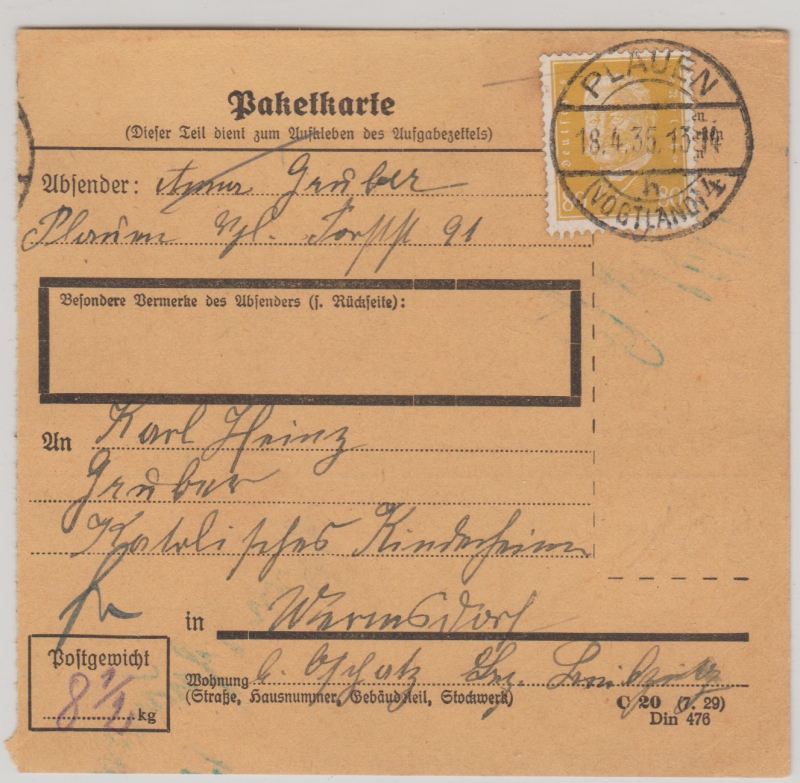 Paketkarte
(Dieser Teil dient zum Aufkleben des Aufgabezettels)
PLAUEN
18.4.35.13-14
n
(VOGTLAND) 4
Deutsch
80 80
Absender: Anna Gruber
Plauen Vgl. Forstst 91
Besondere Vermerke des Absenders (s. Rückseite):
An Karl Heinz
Gruber
Katolisches Kinderheim
in Wermsdorf
Postgewicht
8 1/2 kg
Wohnung b. Oschatz Bez. Leipzig
(Straße, Hausnummer, Gebäudeteil, Stockwerk)
C 20 (7. 29)
Din 476